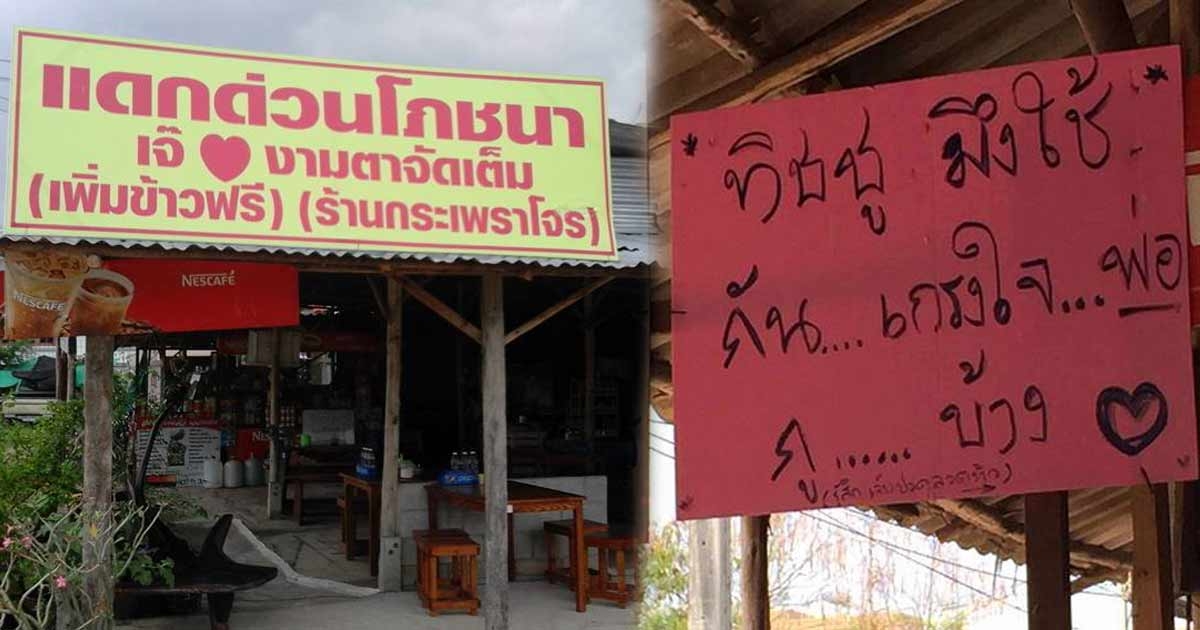 แดกด่วนโภชนา
เจ๊ ♥ งามตาจัดเต็ม
(เพิ่มข้าวฟรี) (ร้านกระเพราโจร)
NESCAFÉ
NESCAFÉ
"ทิชชู มึงใช้
กัน.... เกรงใจ... พ่อ
กู ...... บ้าง ♥